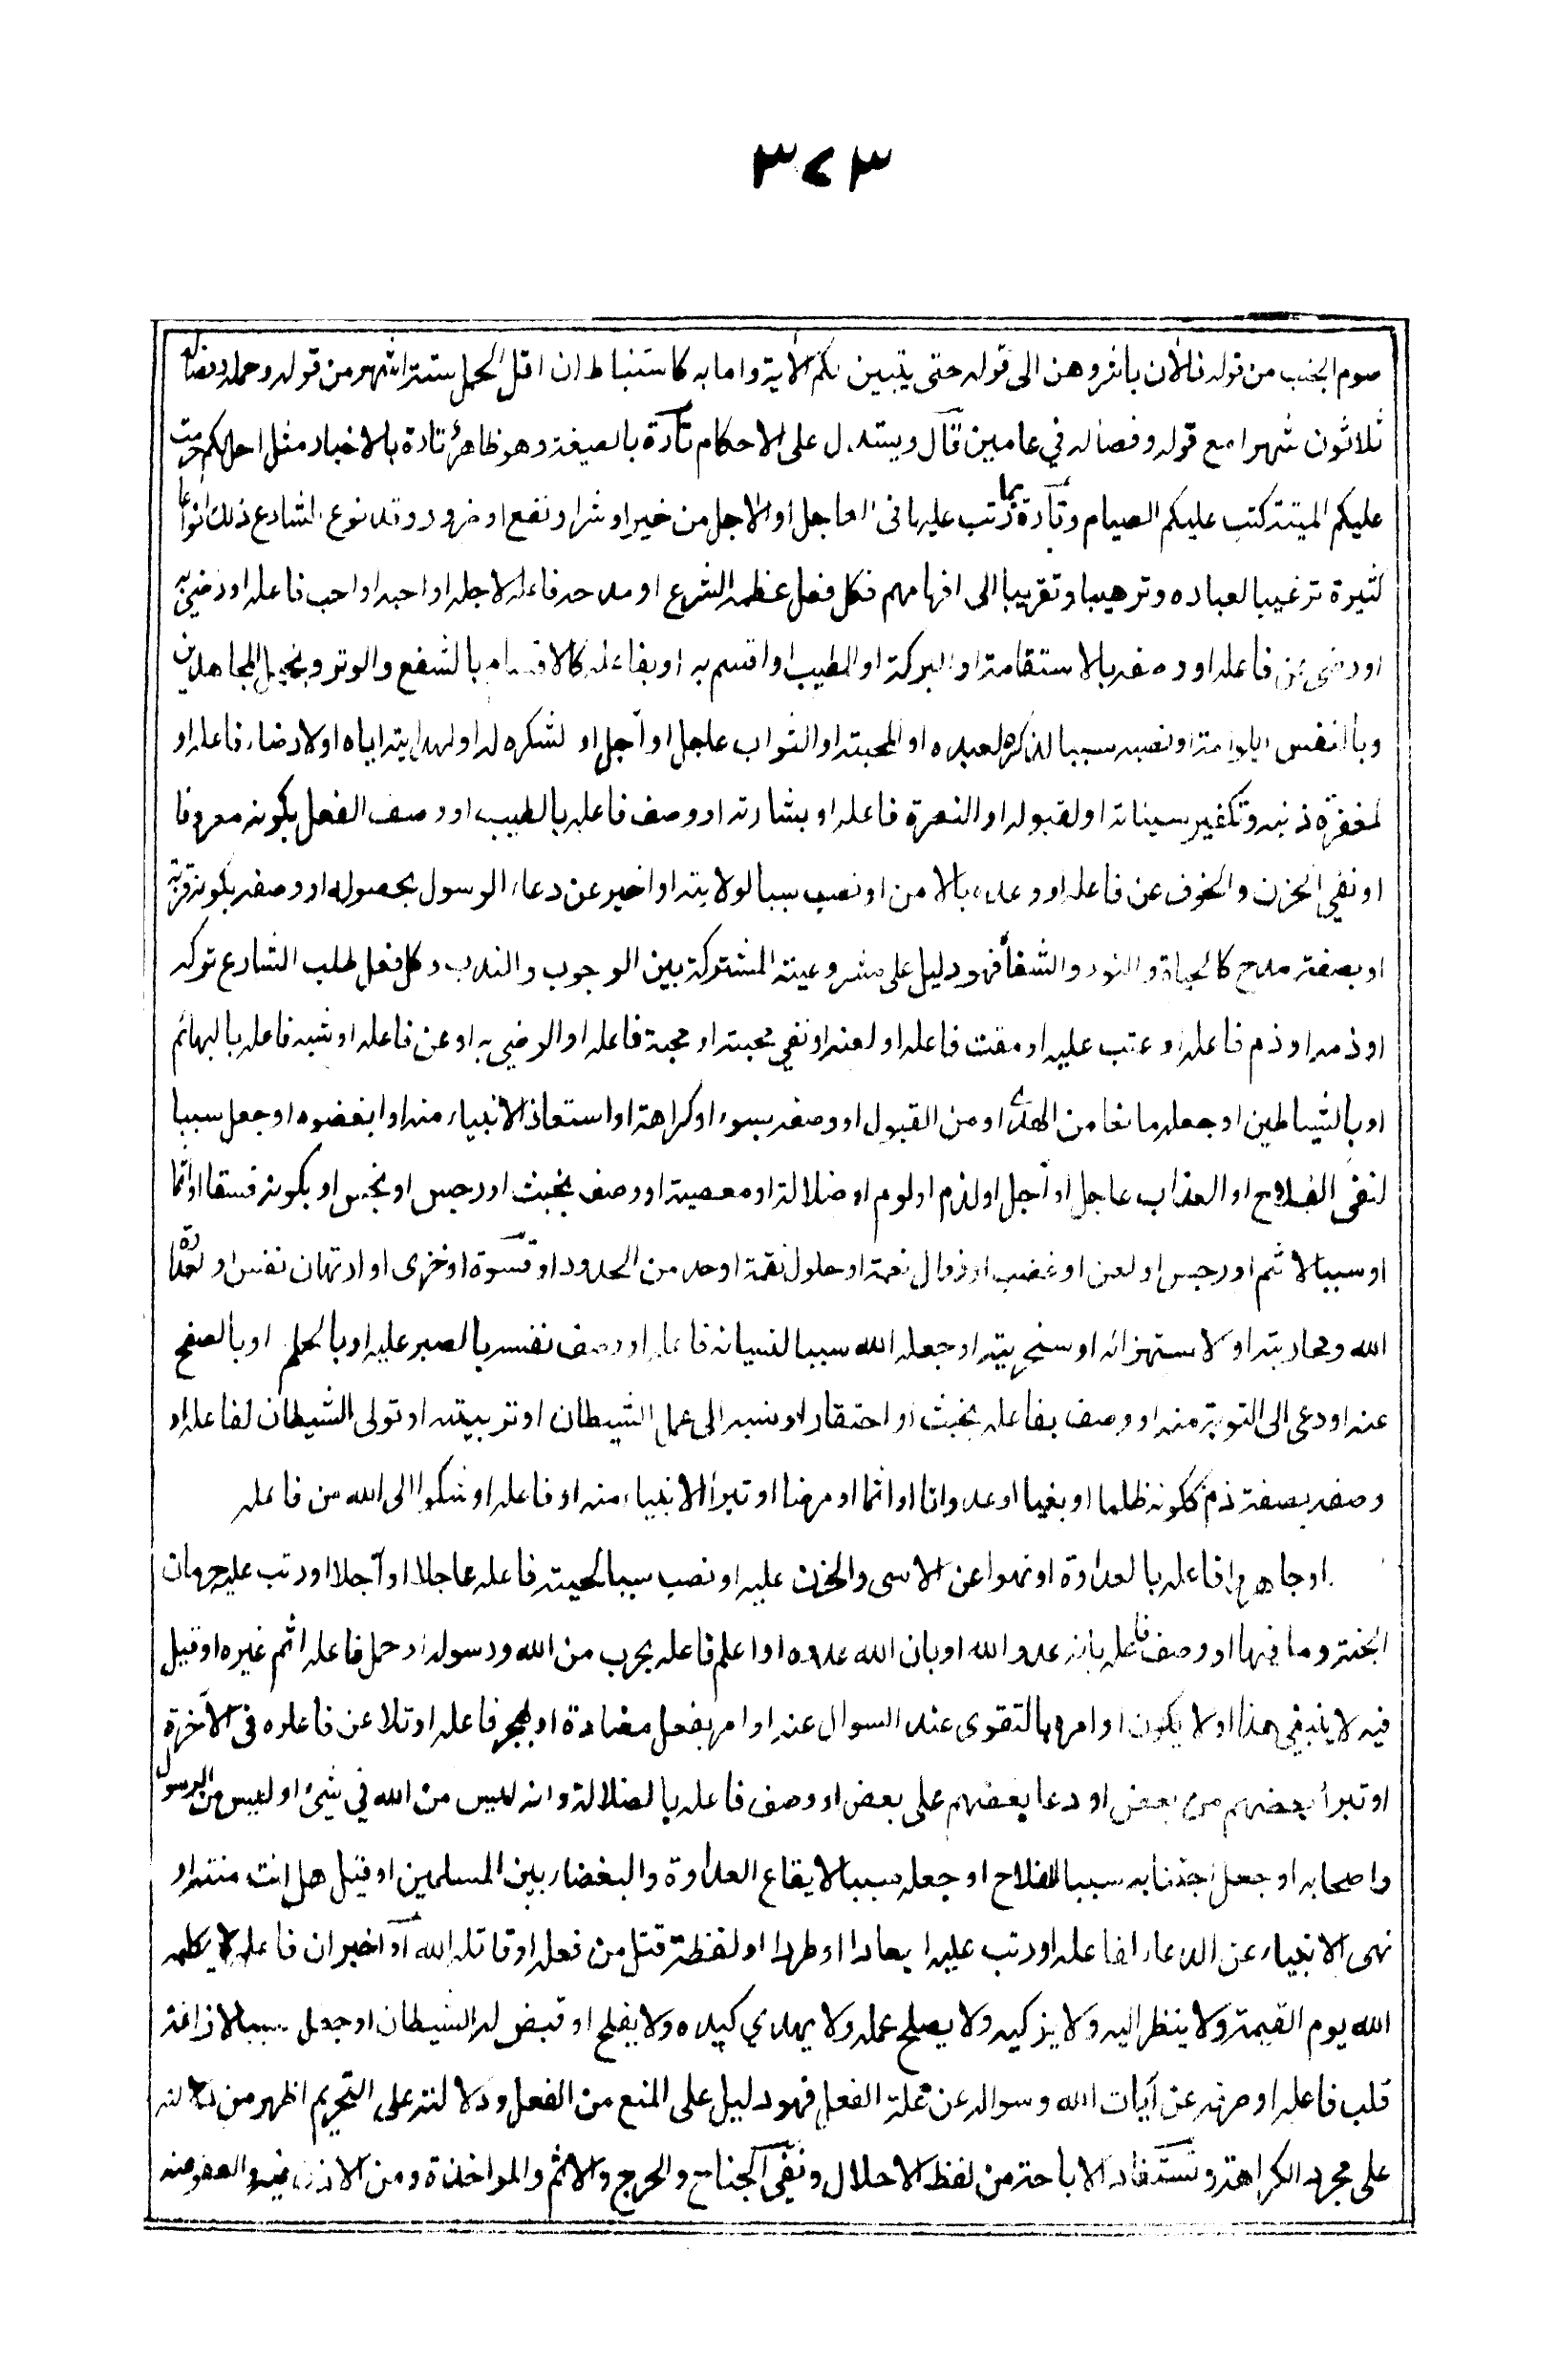 ٣٧٣
صوم الجنب من قوله فالآن باشروهن الى قوله حتى يتبين لكم الاية واما به كاستنباط ان اقل الحمل ستة اشهر من قوله وحمله وفصاله
ثلاثون شهرا مع قوله وفصاله في عامين قال ويستدل على الاحكام تارة بالصيغة وهو ظاهر تارة بالاخبار مثل احل لكم حرمت
عليكم الميتة كتب عليكم الصيام وتارة بما رتب عليها فى العاجل او الاجل من خير او شر او نفع او ضرر وقد نوع الشارع ذلك انواعا
كثيرة ترغيبا لعباده وترهيبا وتقريبا الى افهامهم فكل فعل عظمه الشرع او مدحه او مدح فاعله لاجله او احبه او احب فاعله او رضي به
او رضى عن فاعله او وصفه بالاستقامة او البركة او الطيب او اقسم به او بفاعله كالاقسام بالشفع والوتر وبخيل المجاهدين
وبالنفس اللوامة او نصبه سببا لذكره لعبده او لمحبته او الثواب عاجل او آجل او لشكره له او لهدايته اياه او لارضاء فاعله او
لمغفرة ذنبه وتكفير سيئاته او لقبوله او النصرة فاعله او بشارته او وصف فاعله بالطيب او وصف الفعل بكونه معروفا
او نفي الحزن والخوف عن فاعله او وعده بالامن او نصب سببا لولايته او اخبر عن دعاء الرسول بحصوله او وصفه بكونه قربة
او بصفة مدح كالحياة والنور والشفاء فهو دليل على مشروعيته المشتركة بين الوجوب والندب وكل فعل طلب الشارع تركه
او ذمه او ذم فاعله او عتب عليه او مقت فاعله او لعنه او نفي محبته او محبة فاعله او الرضي به او عن فاعله او شبه فاعله بالبهائم
او بالشياطين او جعله مانعا من الهدى او من القبول او وصفه بسوء او كراهة او استعاذ الانبياء منه او ابغضوه او جعل سببا
لنفى الفلاح او العذاب عاجل او آجل او لذم او لوم او ضلالة او معصية او وصف بخبث او رجس او نجس او بكونه فسقا او اثما
او سببا لاثم او رجس او لعن او غضب او زوال نعمة او حلول نقمة او حد من الحدود او قسوة او خزى او ارتهان نفس او لعداوة
الله ومحاربته او لاستهزائه او سخريته او جعله الله سببا لنسيانه فاعله او وصف نفسه بالصبر عليه او بالحلم او بالصفح
عنه او دعى الى التوبة منه او وصف بفاعله بخبث او احتقار او نسبه الى عمل الشيطان او تزيينه او تولى الشيطان لفاعله او
وصفه بصفة ذم ككونه ظلما او بغيا او عدوانا او اثما او مرضا او تبرأ الانبياء منه او فاعله او شكوا الى الله من فاعله
او جاهروا فاعله بالعداوة او نهوا عن الاسى والحزن عليه او نصب سببا لخيبة فاعله عاجلا او آجلا او رتب عليه حرمان
الجنة وما فيها او وصف فاعله بانه عدو الله او بان الله عدوه او اعلم فاعله بحرب من الله ورسوله او حمل فاعله اثم غيره او قيل
فيه لا ينبغي هذا او لا يكون او امره بالتقوى عند السوال عنه او امر بفعل مضادة او بهجر فاعله او تلاعن فاعلوه فى الآخرة
او تبرأ بعضهم من بعض او دعا بعضهم على بعض او وصف فاعله بالضلالة وانه ليس من الله في شيئ او ليس من الرسول
واصحابه او جعل اجتنابه سببا للفلاح او جعله سببا لايقاع العداوة والبغضاء بين المسلمين او قيل هل انت منته او
نهى الانبياء عن الدعاء لفاعله او رتب عليه ابعادا او طردا او لفظة قتل من فعله او قاتله الله او اخبر ان فاعله لا يكلمه
الله يوم القيمة ولا ينظر اليه ولا يزكيه ولا يصلح عمله ولا يهدي كيده ولا يفلح او قيض له الشيطان او جعل سببا لازاغة
قلب فاعله او صرفه عن آيات الله وسواله عن علة الفعل فهو دليل على المنع من الفعل ودلالته على التحريم اظهر من دلالته
على مجرد الكراهة وتستفاد الاباحة من لفظ الاحلال ونفي الجناح والحرج والاثم والمواخذة ومن الاذن فيه والعفو عنه